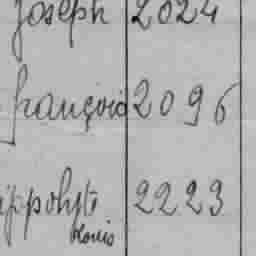 Joseph 2024
françois 2096
ippolyte 2223
Louis